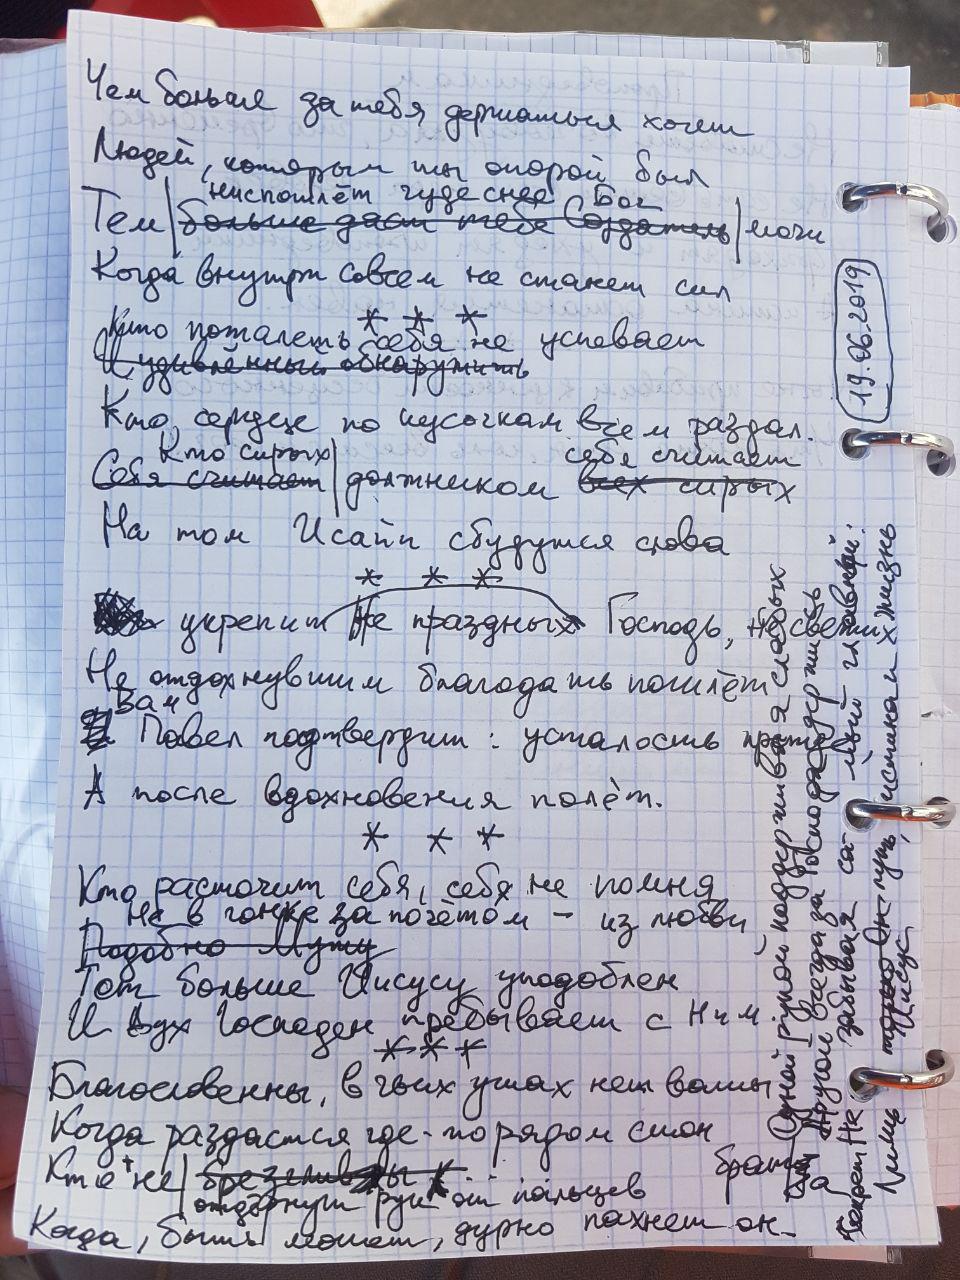 Чем больше за тебя держаться хочет
Людей, которым ты опорой был
ниспошлёт чудесней Бог
Тем больше даст тебе Создатель мочи
Когда внутри совсем не станет сил
* * *
Кто пожалеть себя не успевает
И удивлённый обнаружить
Кто сердце по кусочкам всем раздал.
Кто сирых себя считает
Себя считает должником всех сирых
На том Исайи сбудутся слова
* * *
укрепит Не праздных Господь, не светих
Не отдохнувшим благодать пошлёт
Вам
Павел подтвердит: усталость
А после вдохновения полёт.
* * *
Кто расточит себя, себя не помня
Не в гонке за почётом – из любви
Подобно Мужу
Тот больше Иисусу уподоблен
И Дух Господен пребывает с Ним
* * *
Благословенны, в чьих ушах нет ваты
Когда раздастся где-то рядом стон
Кто не брезгливы
отдёрнут рук от пальцев брата
Когда, быть может, дурно пахнет он.
19.06.2019
Одной рукой поддерживая слабых
Другой всегда за Господа держись
Не забывая самый главный:
Лишь только Он путь, истина и Жизнь
Иисус